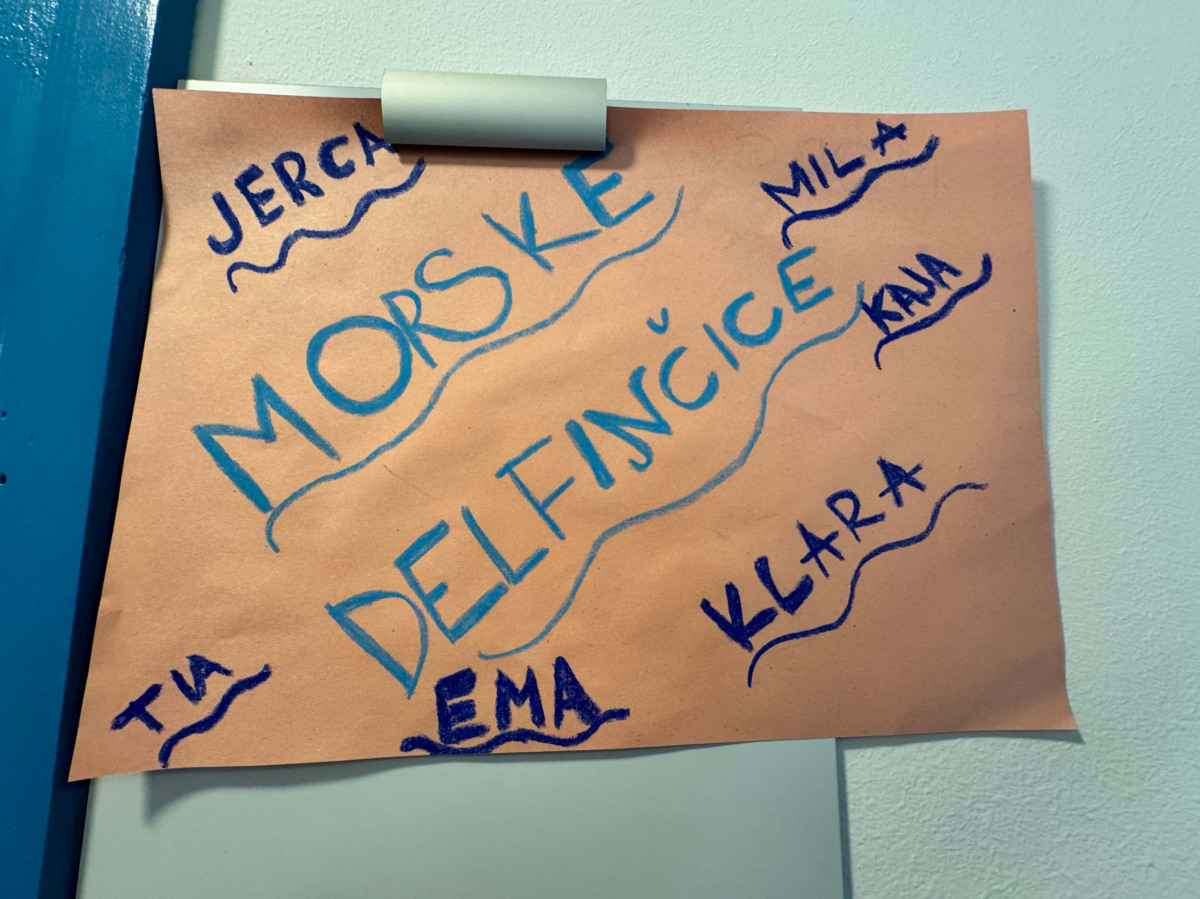 JERCA
MILA
MORSKE
KAJA
DELFINČICE
KLARA
TIA
EMA